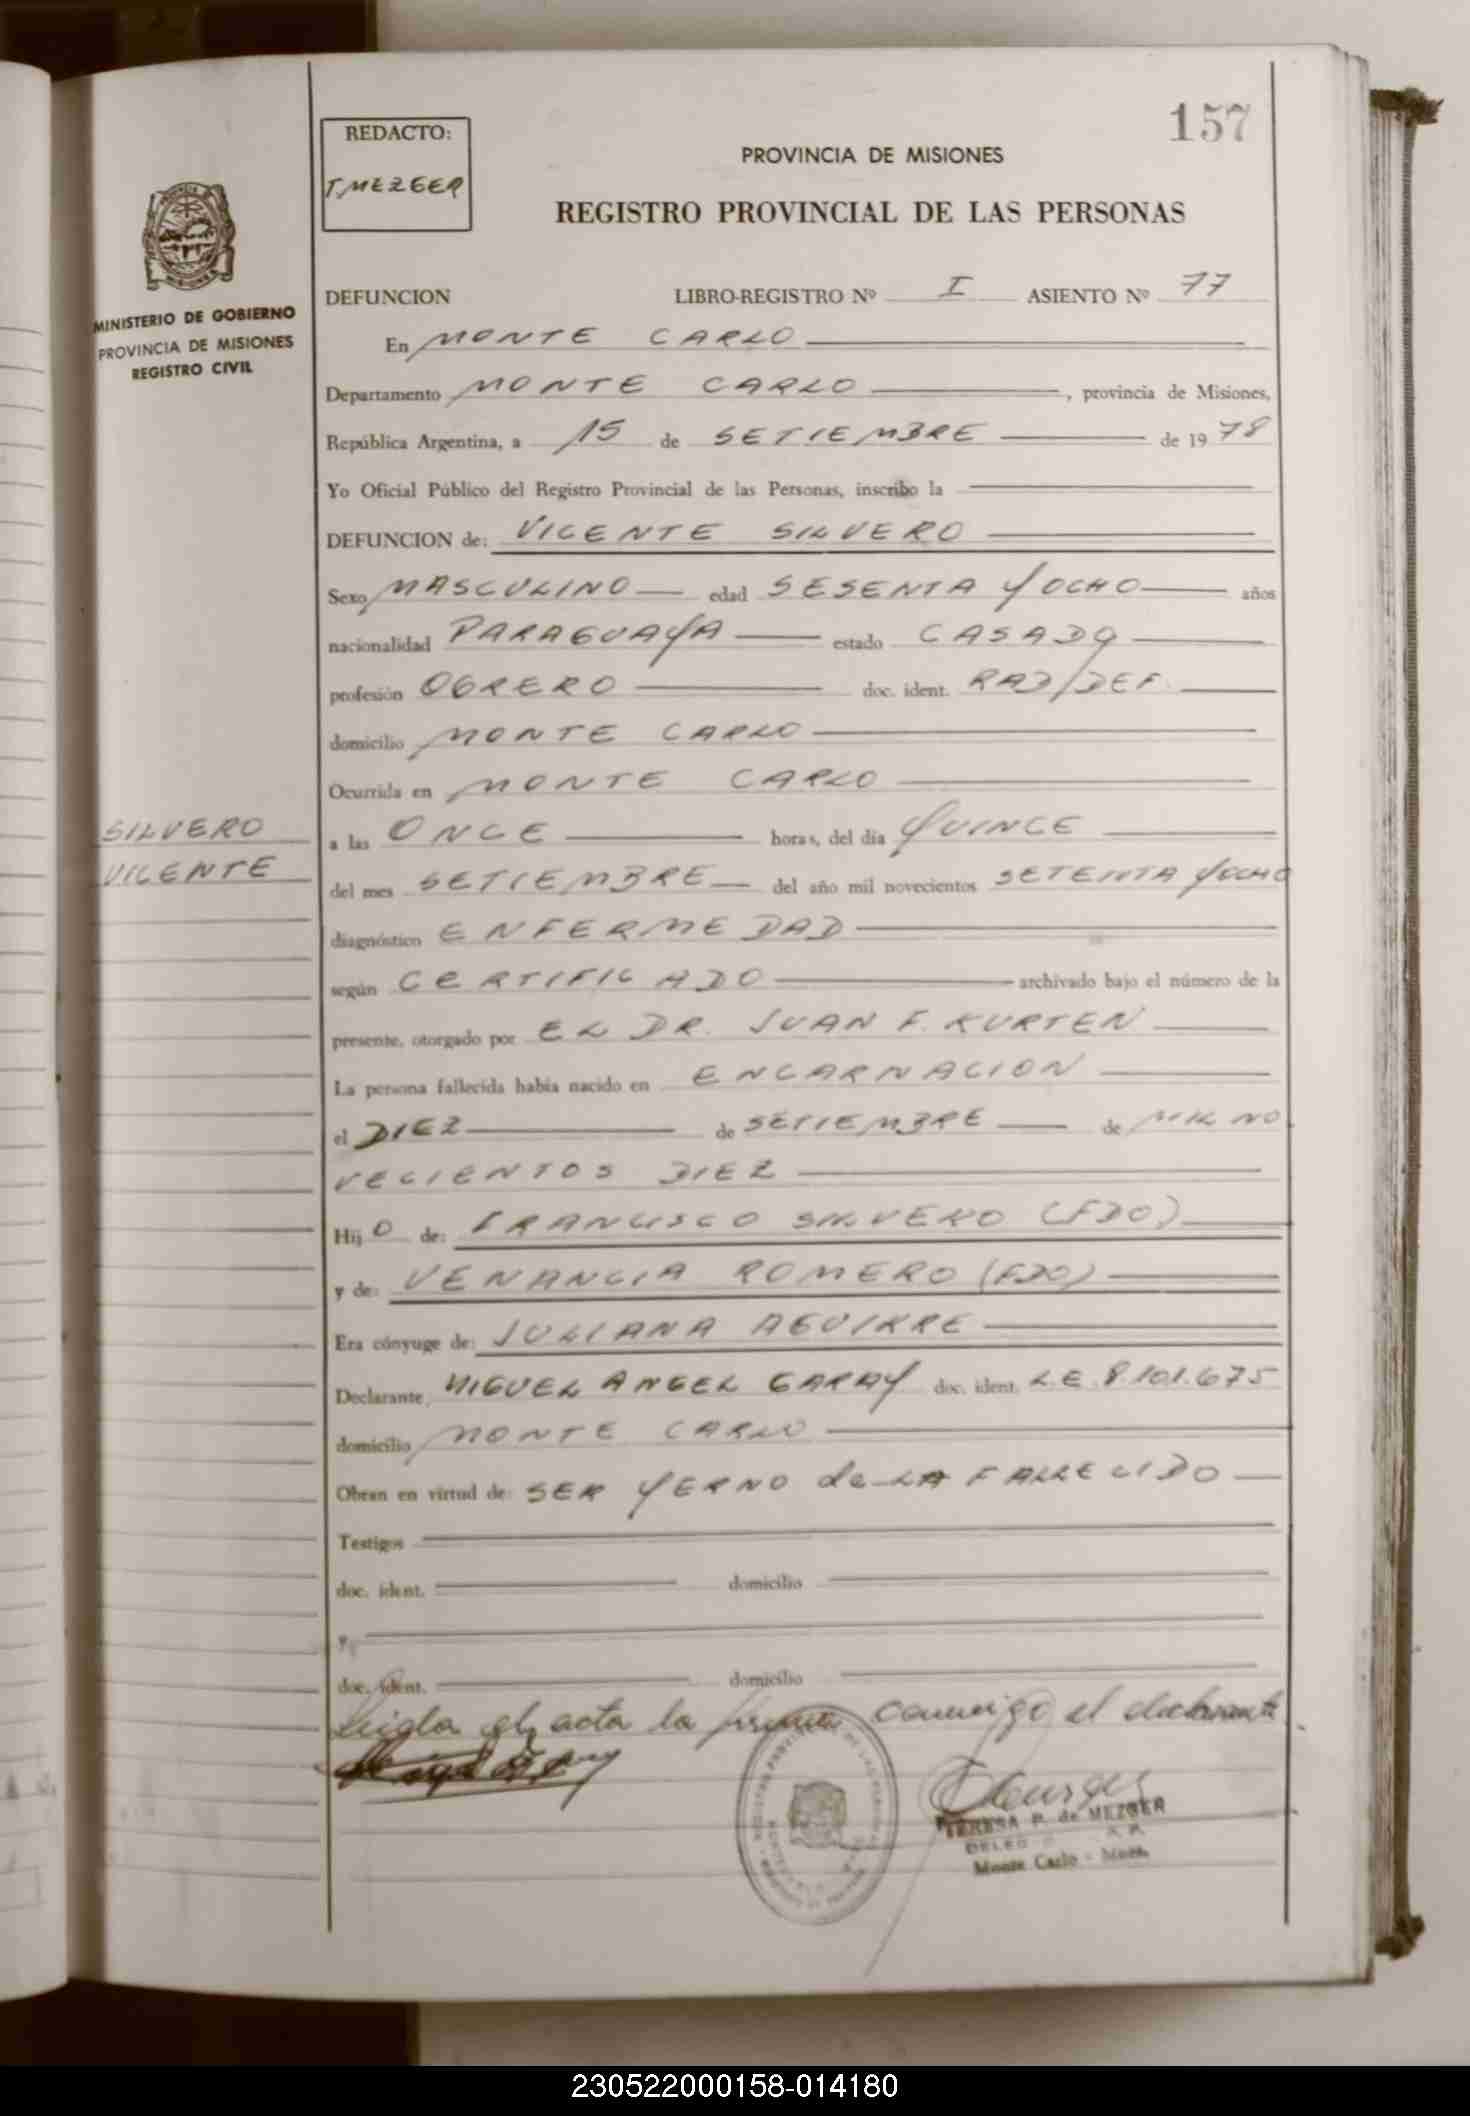 157
REDACTO:
T. MEZGER
PROVINCIA DE MISIONES
REGISTRO PROVINCIAL DE LAS PERSONAS
MINISTERIO DE GOBIERNO
PROVINCIA DE MISIONES
REGISTRO CIVIL
DEFUNCION LIBRO-REGISTRO Nº I ASIENTO Nº 77
En MONTE CARLO
Departamento MONTE CARLO, provincia de Misiones,
República Argentina, a 15 de SETIEMBRE de 1978
Yo Oficial Público del Registro Provincial de las Personas, inscribo la
DEFUNCION de: VICENTE SILVERO
Sexo MASCULINO edad SESENTA Y OCHO años
nacionalidad PARAGUAYA estado CASADO
profesión OBRERO doc. ident. RAD/DEF.
domicilio MONTE CARLO
Ocurrida en MONTE CARLO
SILVERO
VICENTE
a las ONCE horas, del día QUINCE
del mes SETIEMBRE del año mil novecientos SETENTA Y OCHO
diagnóstico ENFERMEDAD
según CERTIFICADO archivado bajo el número de la
presente, otorgado por EL DR. JUAN F. KURTEN
La persona fallecida había nacido en ENCARNACION
el DIEZ de SETIEMBRE de MIL NO
VECIENTOS DIEZ
Hij O de: FRANCISCO SILVERO (FDO)
y de: VENANCIA ROMERO (FDO)
Era cónyuge de: JULIANA AGUIRRE
Declarante, MIGUEL ANGEL GARAY doc. ident. L.E. 8.101.675
domicilio MONTE CARLO
Obran en virtud de: SER YERNO de LA FALLECIDO
Testigos
doc. ident. domicilio
y
doc. ident. domicilio
Leida el acta la firma conmigo el declarante
TERESA P. de MEZGER
Monte Carlo - Mnes.
230522000158-014180